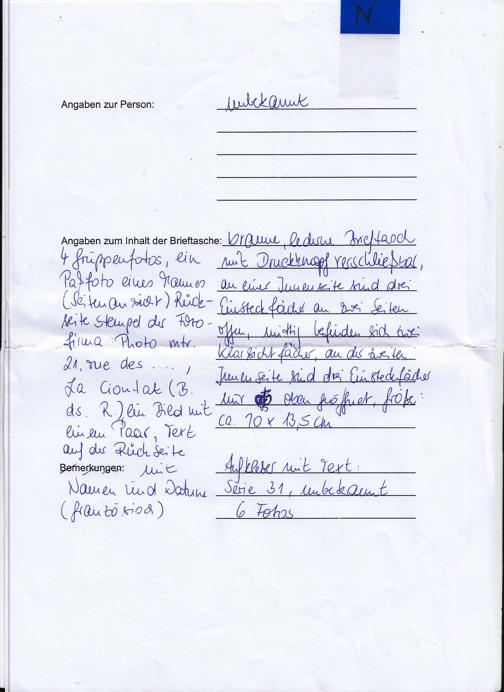 N
Angaben zur Person: unbekannt
Angaben zum Inhalt der Brieftasche: braune, lederne Brieftasch
mit Druckknopf verschließbar,
an einer Innenseite sind drei
Einsteckfächer an zwei Seiten
offen, mittig befinden sich zwei
Klarsichtfächer, an der zweiten
Innenseite sind drei Einsteckfächer
nur oben geöffnet, Größe:
ca. 10 x 13,5 cm
4 Gruppenfotos, ein
Paßfoto eines Mannes
(Seitenansicht) Rück-
seite Stempel der Foto-
firma Photo mtr.
21, rue des ....,
La Ciontak (B.
ds. R.) ein Bild mit
einem Paar, Text
auf der Rückseite
mit
Namen und Datum
(französisch)
Bemerkungen: Aufkleber mit Text:
Serie 31, unbekannt
6 Fotos